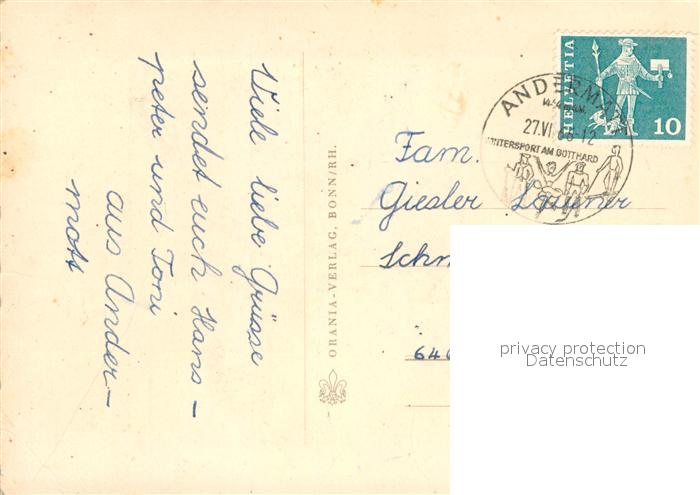 Viele liebe Grüsse
sendet euch Hans-
peter und Toni
aus Ander-
matt
ORANIA-VERLAG, BONN/RH.
HELVETIA
10
ANDERMA
27.VI 12
WINTERSPORT AM GOTTHARD
Fam.
Giesler
Schn
privacy protection
Datenschutz